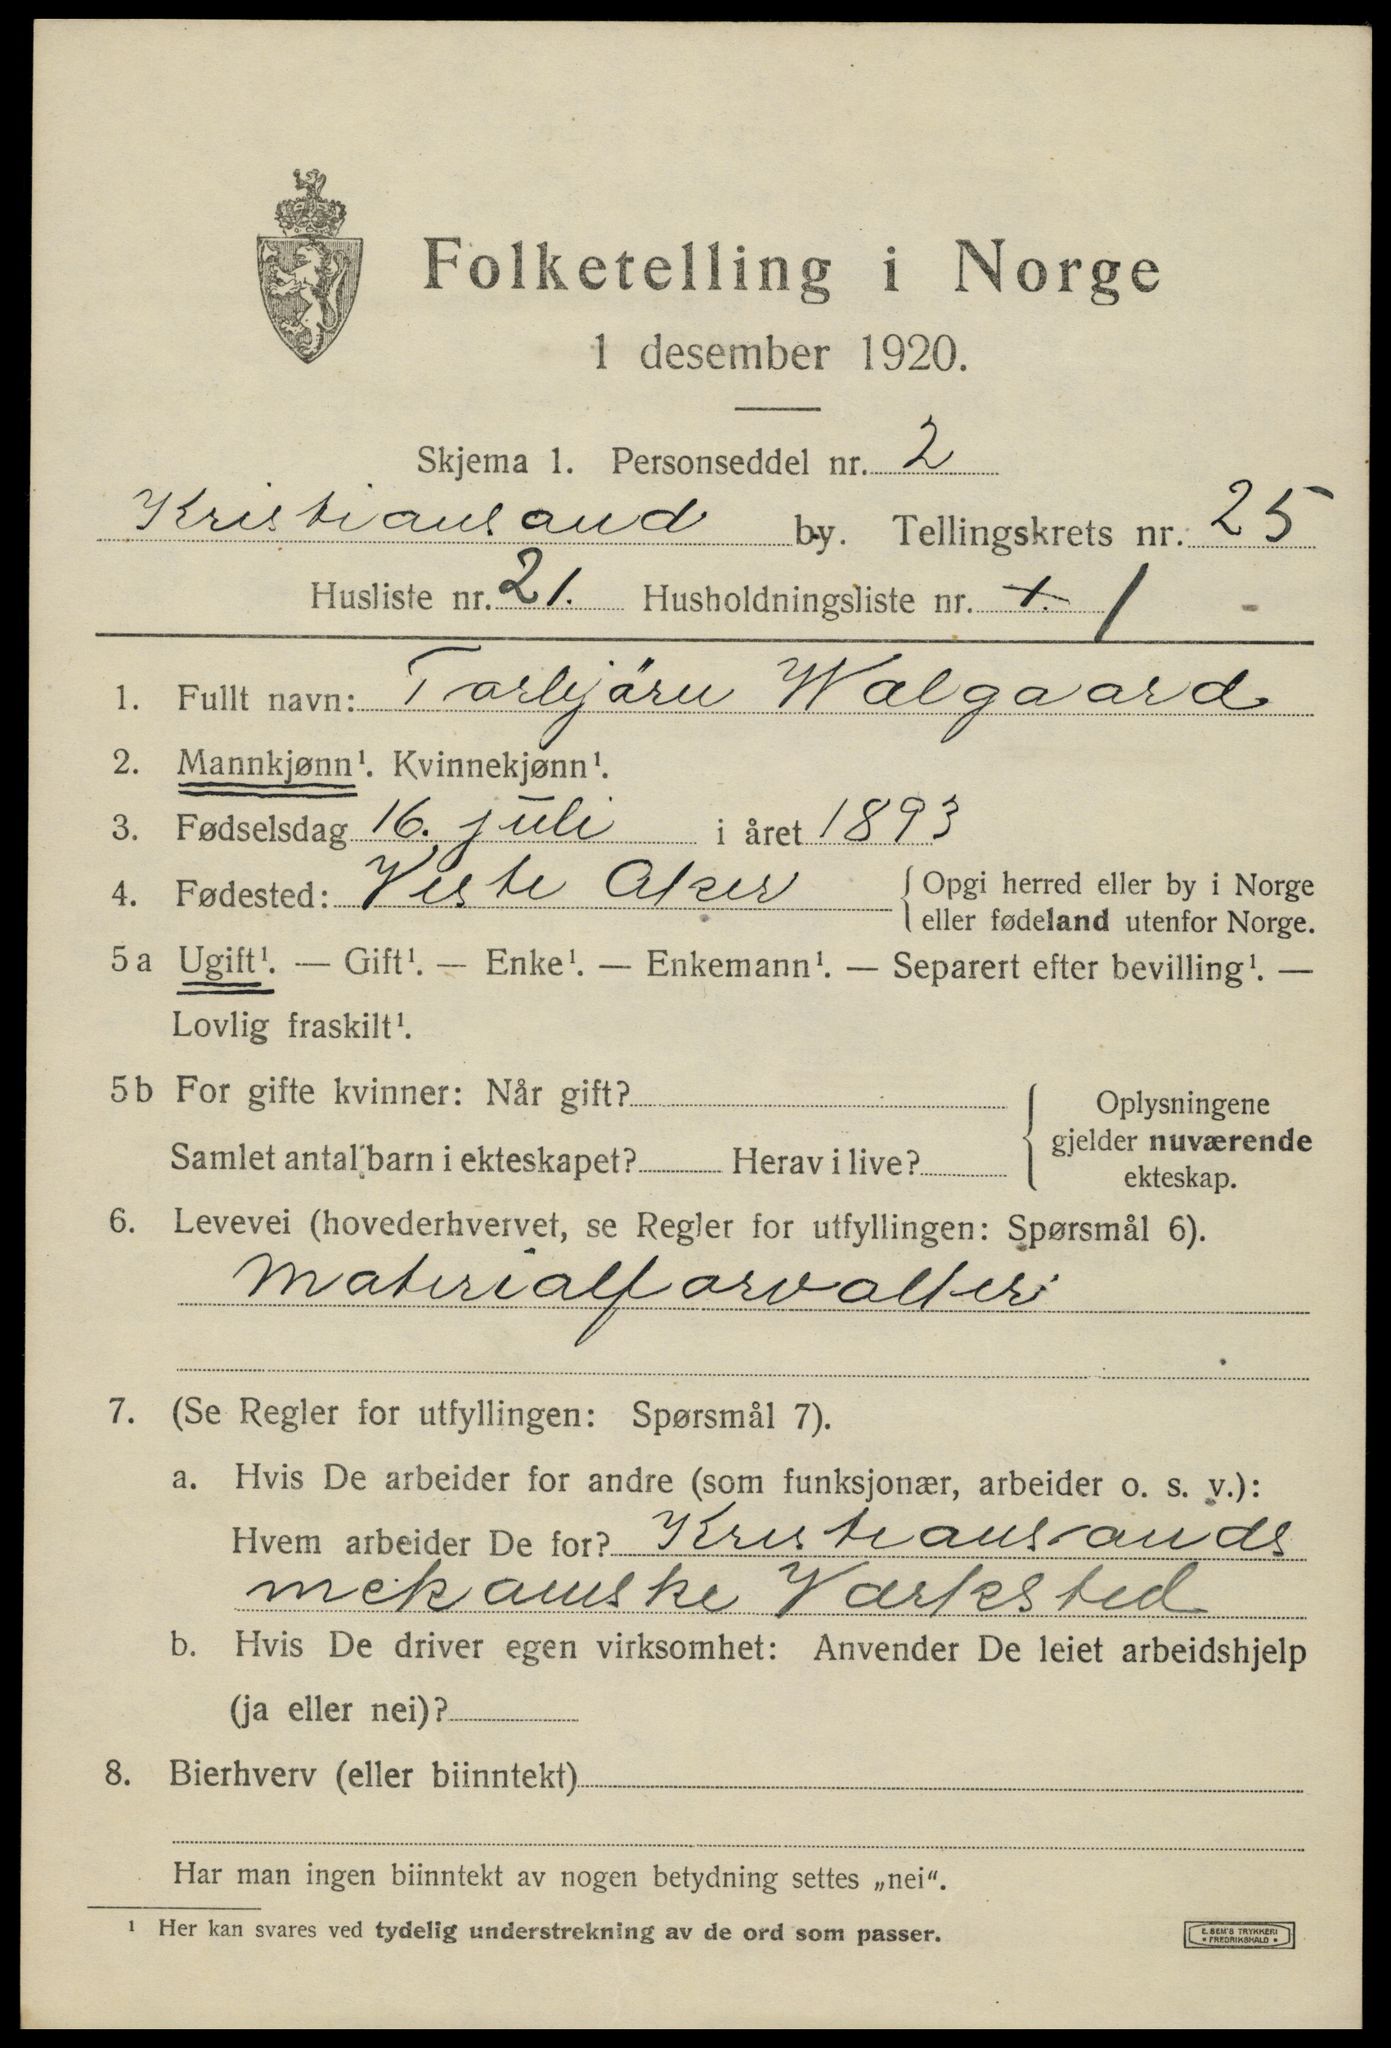 Folketelling i Norge
1 desember 1920.
Skjema 1. Personseddel nr. 2
Kristiansand by. Tellingskrets nr. 25
Husliste nr. 21. Husholdningsliste nr. 1. 1
1. Fullt navn: Torbjörn Walgaard
2. Mannkjønn¹. Kvinnekjønn¹.
3. Fødselsdag 16. juli i året 1893
4. Fødested: Vestre Aker { Opgi herred eller by i Norge
eller fødeland utenfor Norge.
5a Ugift¹. — Gift¹. — Enke¹. — Enkemann¹. — Separert efter bevilling¹. —
Lovlig fraskilt¹.
5b For gifte kvinner: Når gift?
Samlet antal barn i ekteskapet? Herav i live?
Oplysningene
gjelder nuværende
ekteskap.
6. Levevei (hovederhvervet, se Regler for utfyllingen: Spørsmål 6).
Materialforvalter
7. (Se Regler for utfyllingen: Spørsmål 7).
a. Hvis De arbeider for andre (som funksjonær, arbeider o. s. v.):
Hvem arbeider De for? Kristiansands
mekaniske Værksted
b. Hvis De driver egen virksomhet: Anvender De leiet arbeidshjelp
(ja eller nei)?
8. Bierhverv (eller biinntekt)
Har man ingen biinntekt av nogen betydning settes „nei“.
¹ Her kan svares ved tydelig understrekning av de ord som passer.
E. SEM'S TRYKKERI
FREDRIKSHALD